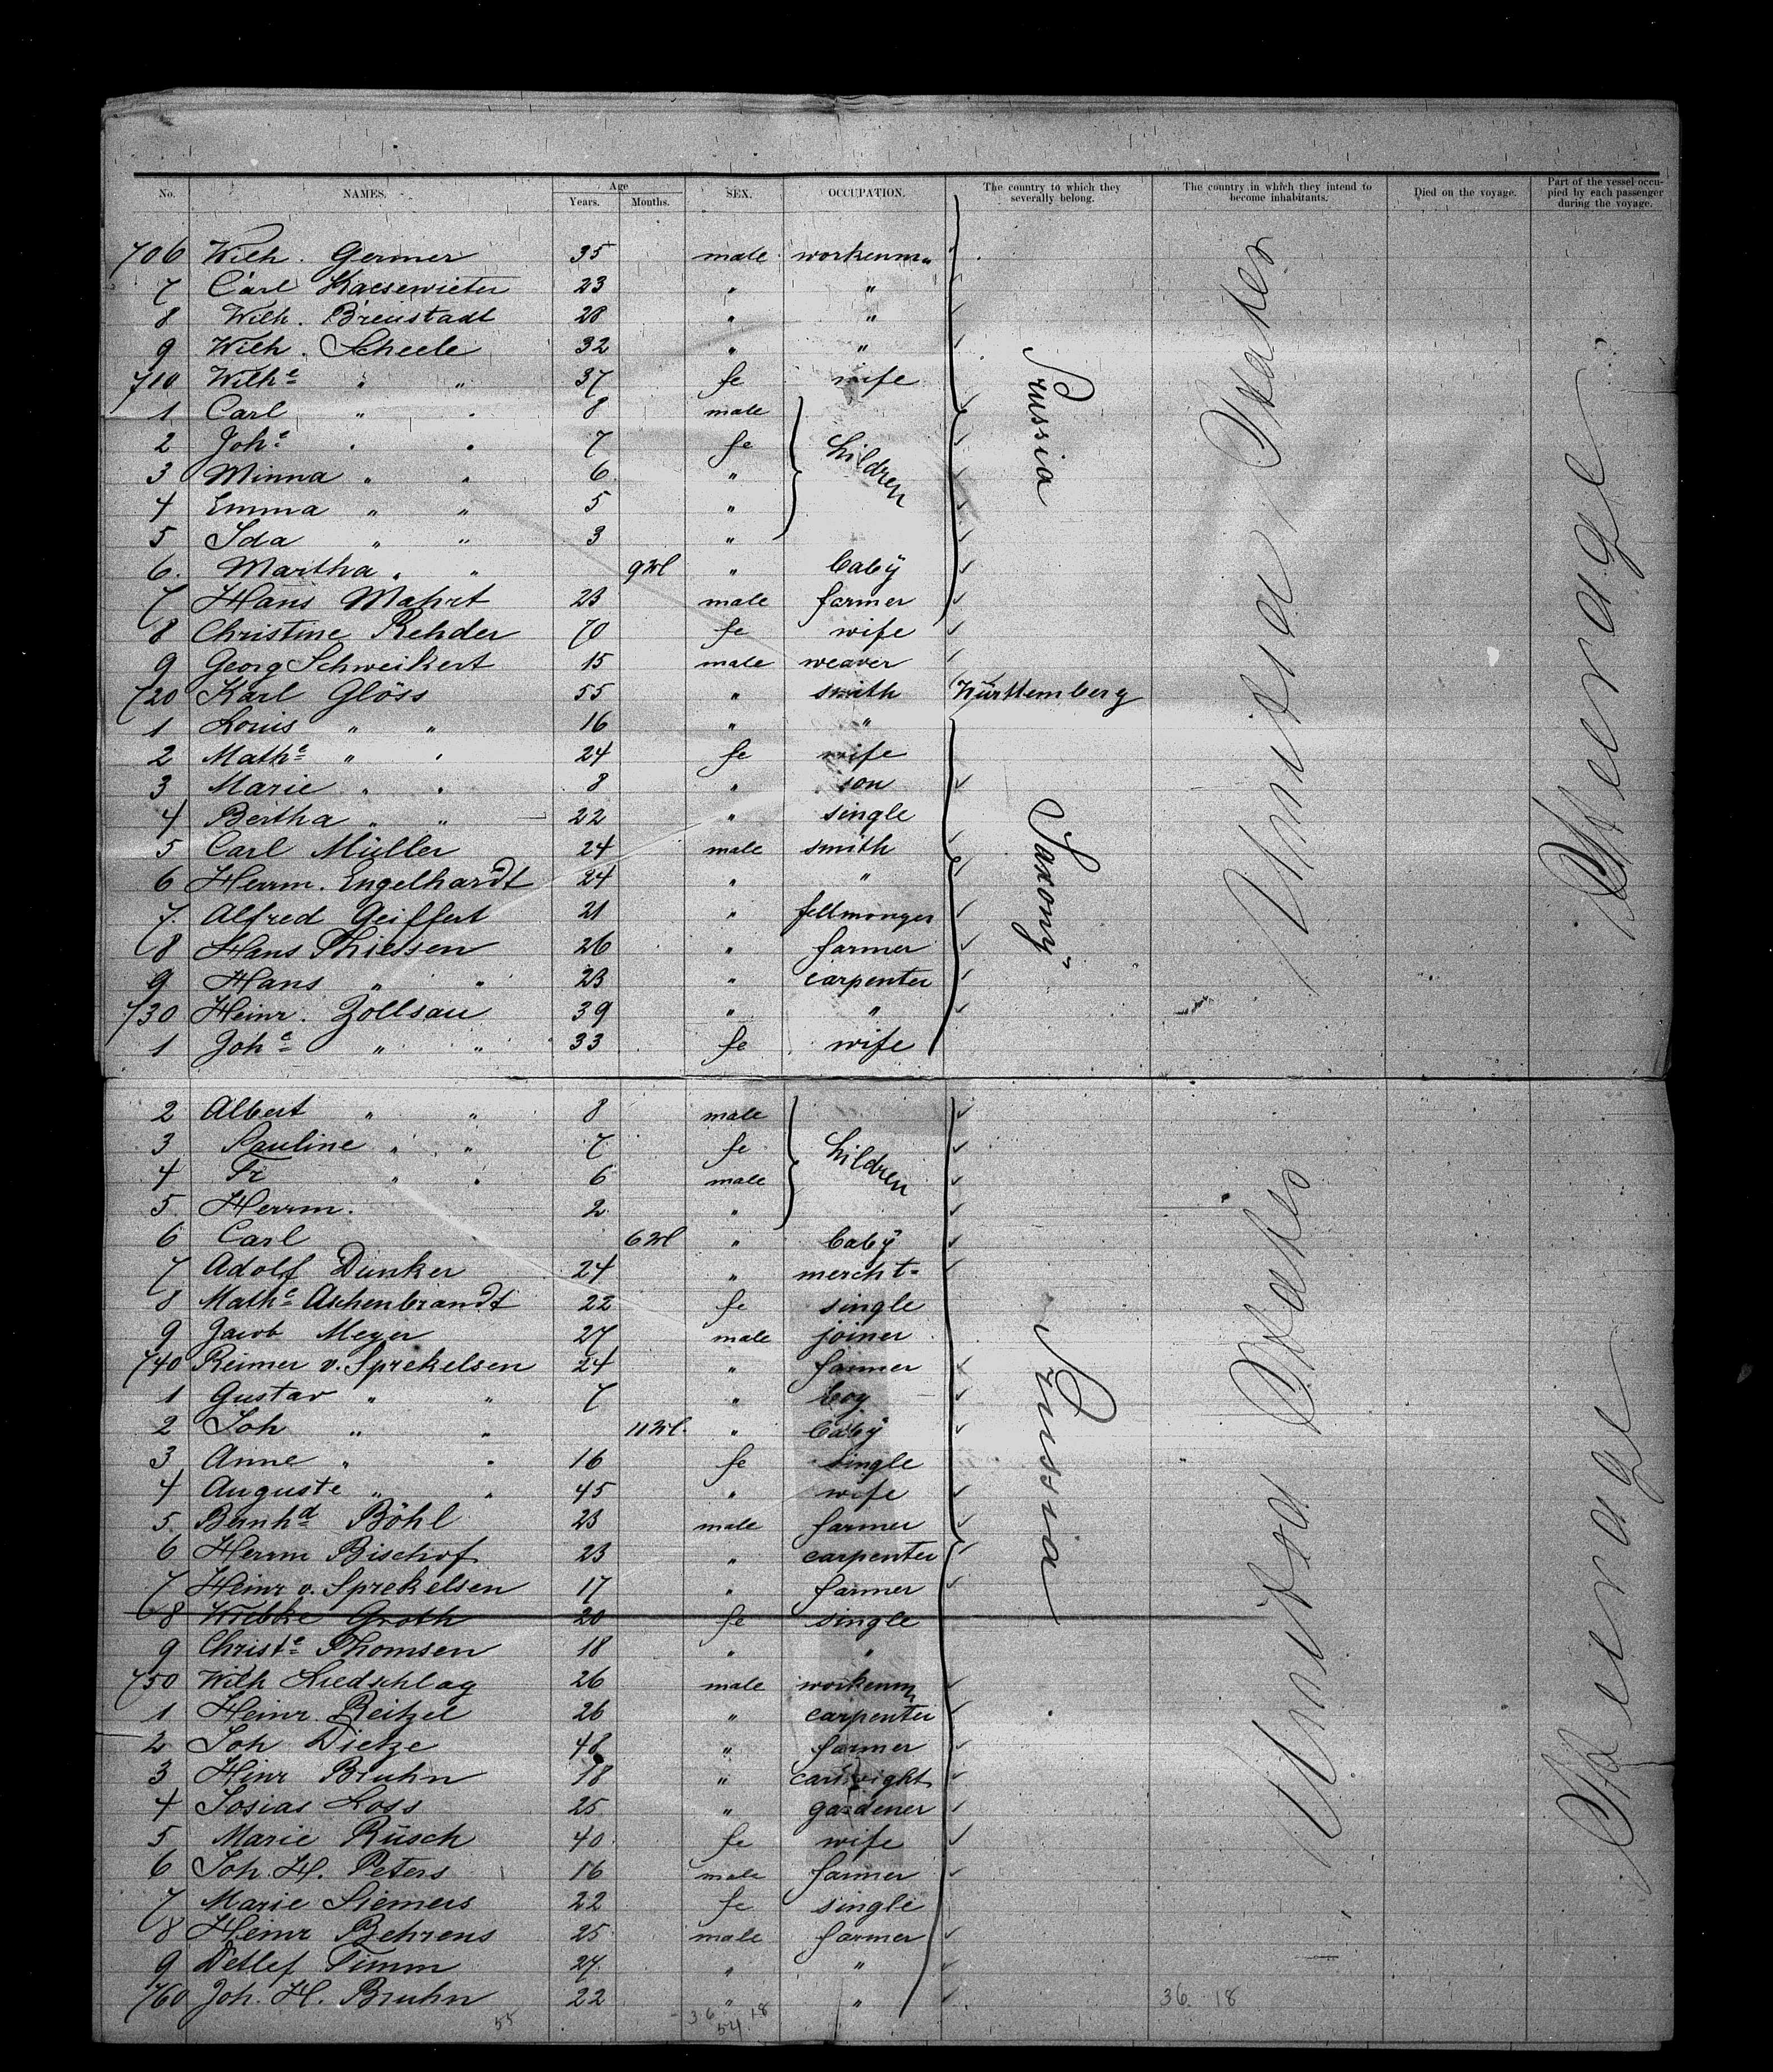 No. NAMES. Age Years. Months. SEX. OCCUPATION. The country to which they severally belong. The country in which they intend to become inhabitants. Died on the voyage. Part of the vessel occupied by each passenger during the voyage.
706 Wilh. Germer 35 male workenm„
7 Carl Kaesewieter 23 " "
8 Wilh. Breustadt 28 " "
9 Wilh. Scheele 32 " "
710 Wilhe " " 37 fe wife
1 Carl " " 8 male
2 Johe " " 7 fe children
3 Minna " " 6 "
4 Emma " " 5 "
5 Ida " " 3 "
6. Martha " " 9M "  baby
7 Hans Mahrt 23 male farmer
8 Christine Rehder 70 fe wife
9 Georg Schweikert 15 male weaver
720 Karl Glöss 55 " smith Württemberg
1 Louis " " 16 " "
2 Mathe " " 24 fe wife
3 Marie " " 8 " son
4 Bertha " " 22 " single
5 Carl Müller 24 male smith
6 Herrm. Engelhardt 24 " "
7. Alfred Geiffert 21 " fellmonger
8 Hans Thiessen 26 " farmer
9 Hans " " 23 " carpenter
730 Heinr. Zollsau 39 " "
1 Johe " " 33 fe wife
2 Albert " " 8 male
3 Pauline " " 7 fe children
4 Fr " " 6 male
5 Herrm. 2 "
6 Carl 6M " baby
7 Adolf Dunker 24 " mercht=
8 Mathe Aschenbrandt 22 fe single
9 Jacob Meyer 27 male joiner
740 Reimer v. Sprekelsen 24 " farmer
1 Gustav " " 7 " boy
2 Joh " " 11M. " baby
3 Anne " " 16 fe single
4 Auguste " " 45 " wife
5 Bernhd Böhl 23 male farmer
6 Herrm Bischof 23 " carpenter
7 Heinr v. Sprekelsen 17 " farmer
8 Wiebke Groth 20 fe single
9 Christe Thomsen 18 " "
750 Wilh Liedschlag 26 male workenm
1 Heinr. Reitzel 26 " carpenter
2 Joh Dietze 48 " farmer
3 Heinr Bruhn 18 " cartwright
4 Josias Loss 25 " gardener
5 Marie Rüsch 40 fe wife
6 Joh. H. Peters 16 male farmer
7 Marie Siemers 22 fe single
8 Heinr Behrens 25 male farmer
9 Detlef Timm 27 " "
760 Joh. H. Bruhn 22 " "
55 36 18 36 18
54
Prussia
Saxony
Prussia
United States
United States
Steerage
Steerage